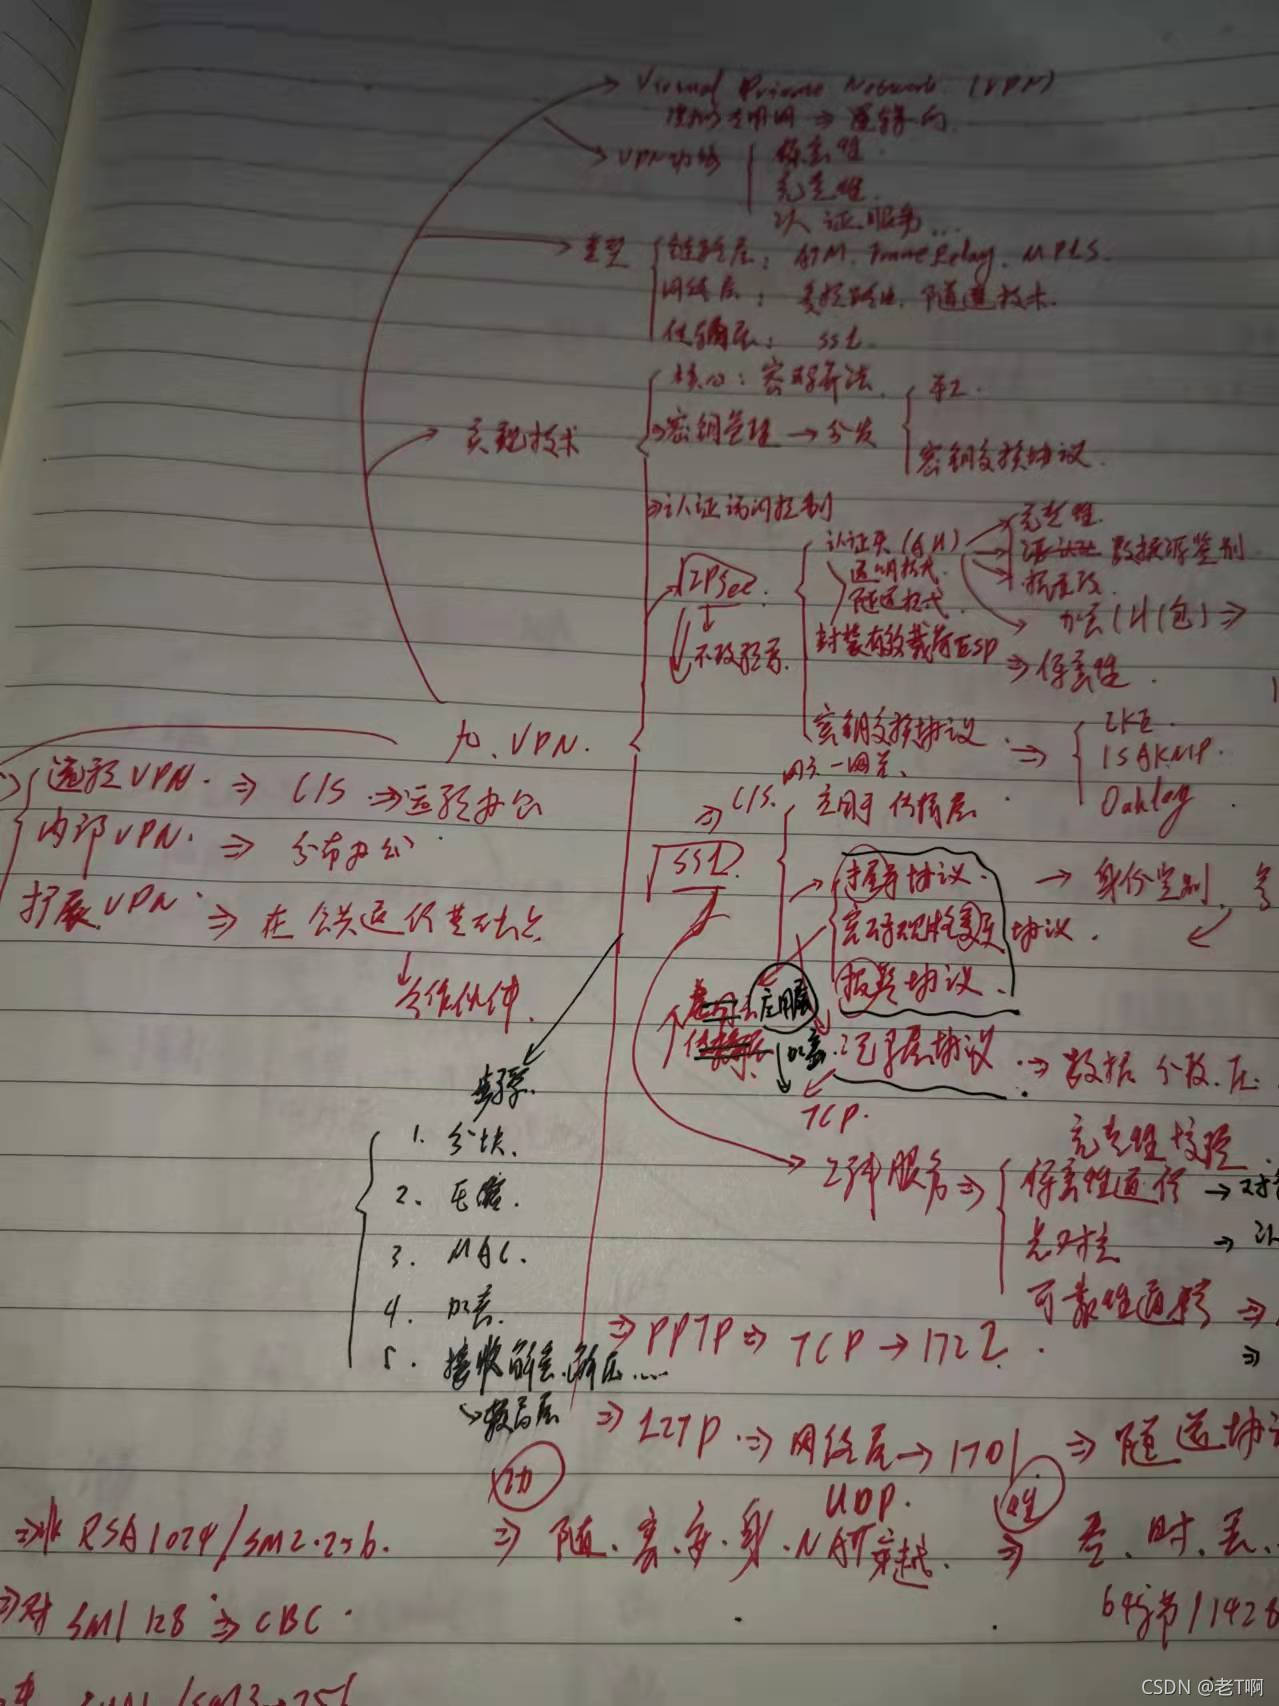 Virtual Private Network (VPN)
虚拟专用网 → 逻辑
VPN功能
保密性
完整性
认证服务...
类型
链路层: ATM. Frame Relay. MPLS.
网络层: 受控路由. 隧道技术.
传输层: SSL.
实现技术
核心: 密码算法.
密钥管理 → 分发
手工.
密钥交换协议.
⇒认证访问控制
IPSec.
认证头(AH)
透明模式.
隧道模式.
完整性
数据源鉴别
抗重放.
加密(IP包) ⇒
封装有效载荷ESP
⇒保密性.
密钥交换协议. ⇒
IKE.
ISAKMP.
Oakley.
九、VPN.
远程VPN. ⇒ C/S ⇒ 远程办公
内部VPN. ⇒ 分布办公
扩展VPN ⇒ 在公共通信基础上
合作伙伴.
⇒ C/S.
应用于传输层
SSL.
握手协议. → 身份鉴别,
密码规格变更协议.
报警协议.
应用层
加密.
记录层协议. → 数据分段.压.
TCP.
步骤.
1. 分块.
2. 压缩.
3. MAC.
4. 加密.
5. 接收解密.解压....
→较高层
3种服务 ⇒
完整性校验.
保密性通信 → 对
点对点
可靠性通信 ⇒
⇒ PPTP ⇒ TCP → 1723.
⇒ L2TP. ⇒ 网络层 → 1701 ⇒ 隧道协
UDP.
功
性
⇒非 RSA1024/SM2.256.
⇒ 随.密.安.身.NAT穿越. ⇒
⇒对 SM1 128 ⇒ CBC.
64字节/1428
/SM3→256
CSDN @老T啊